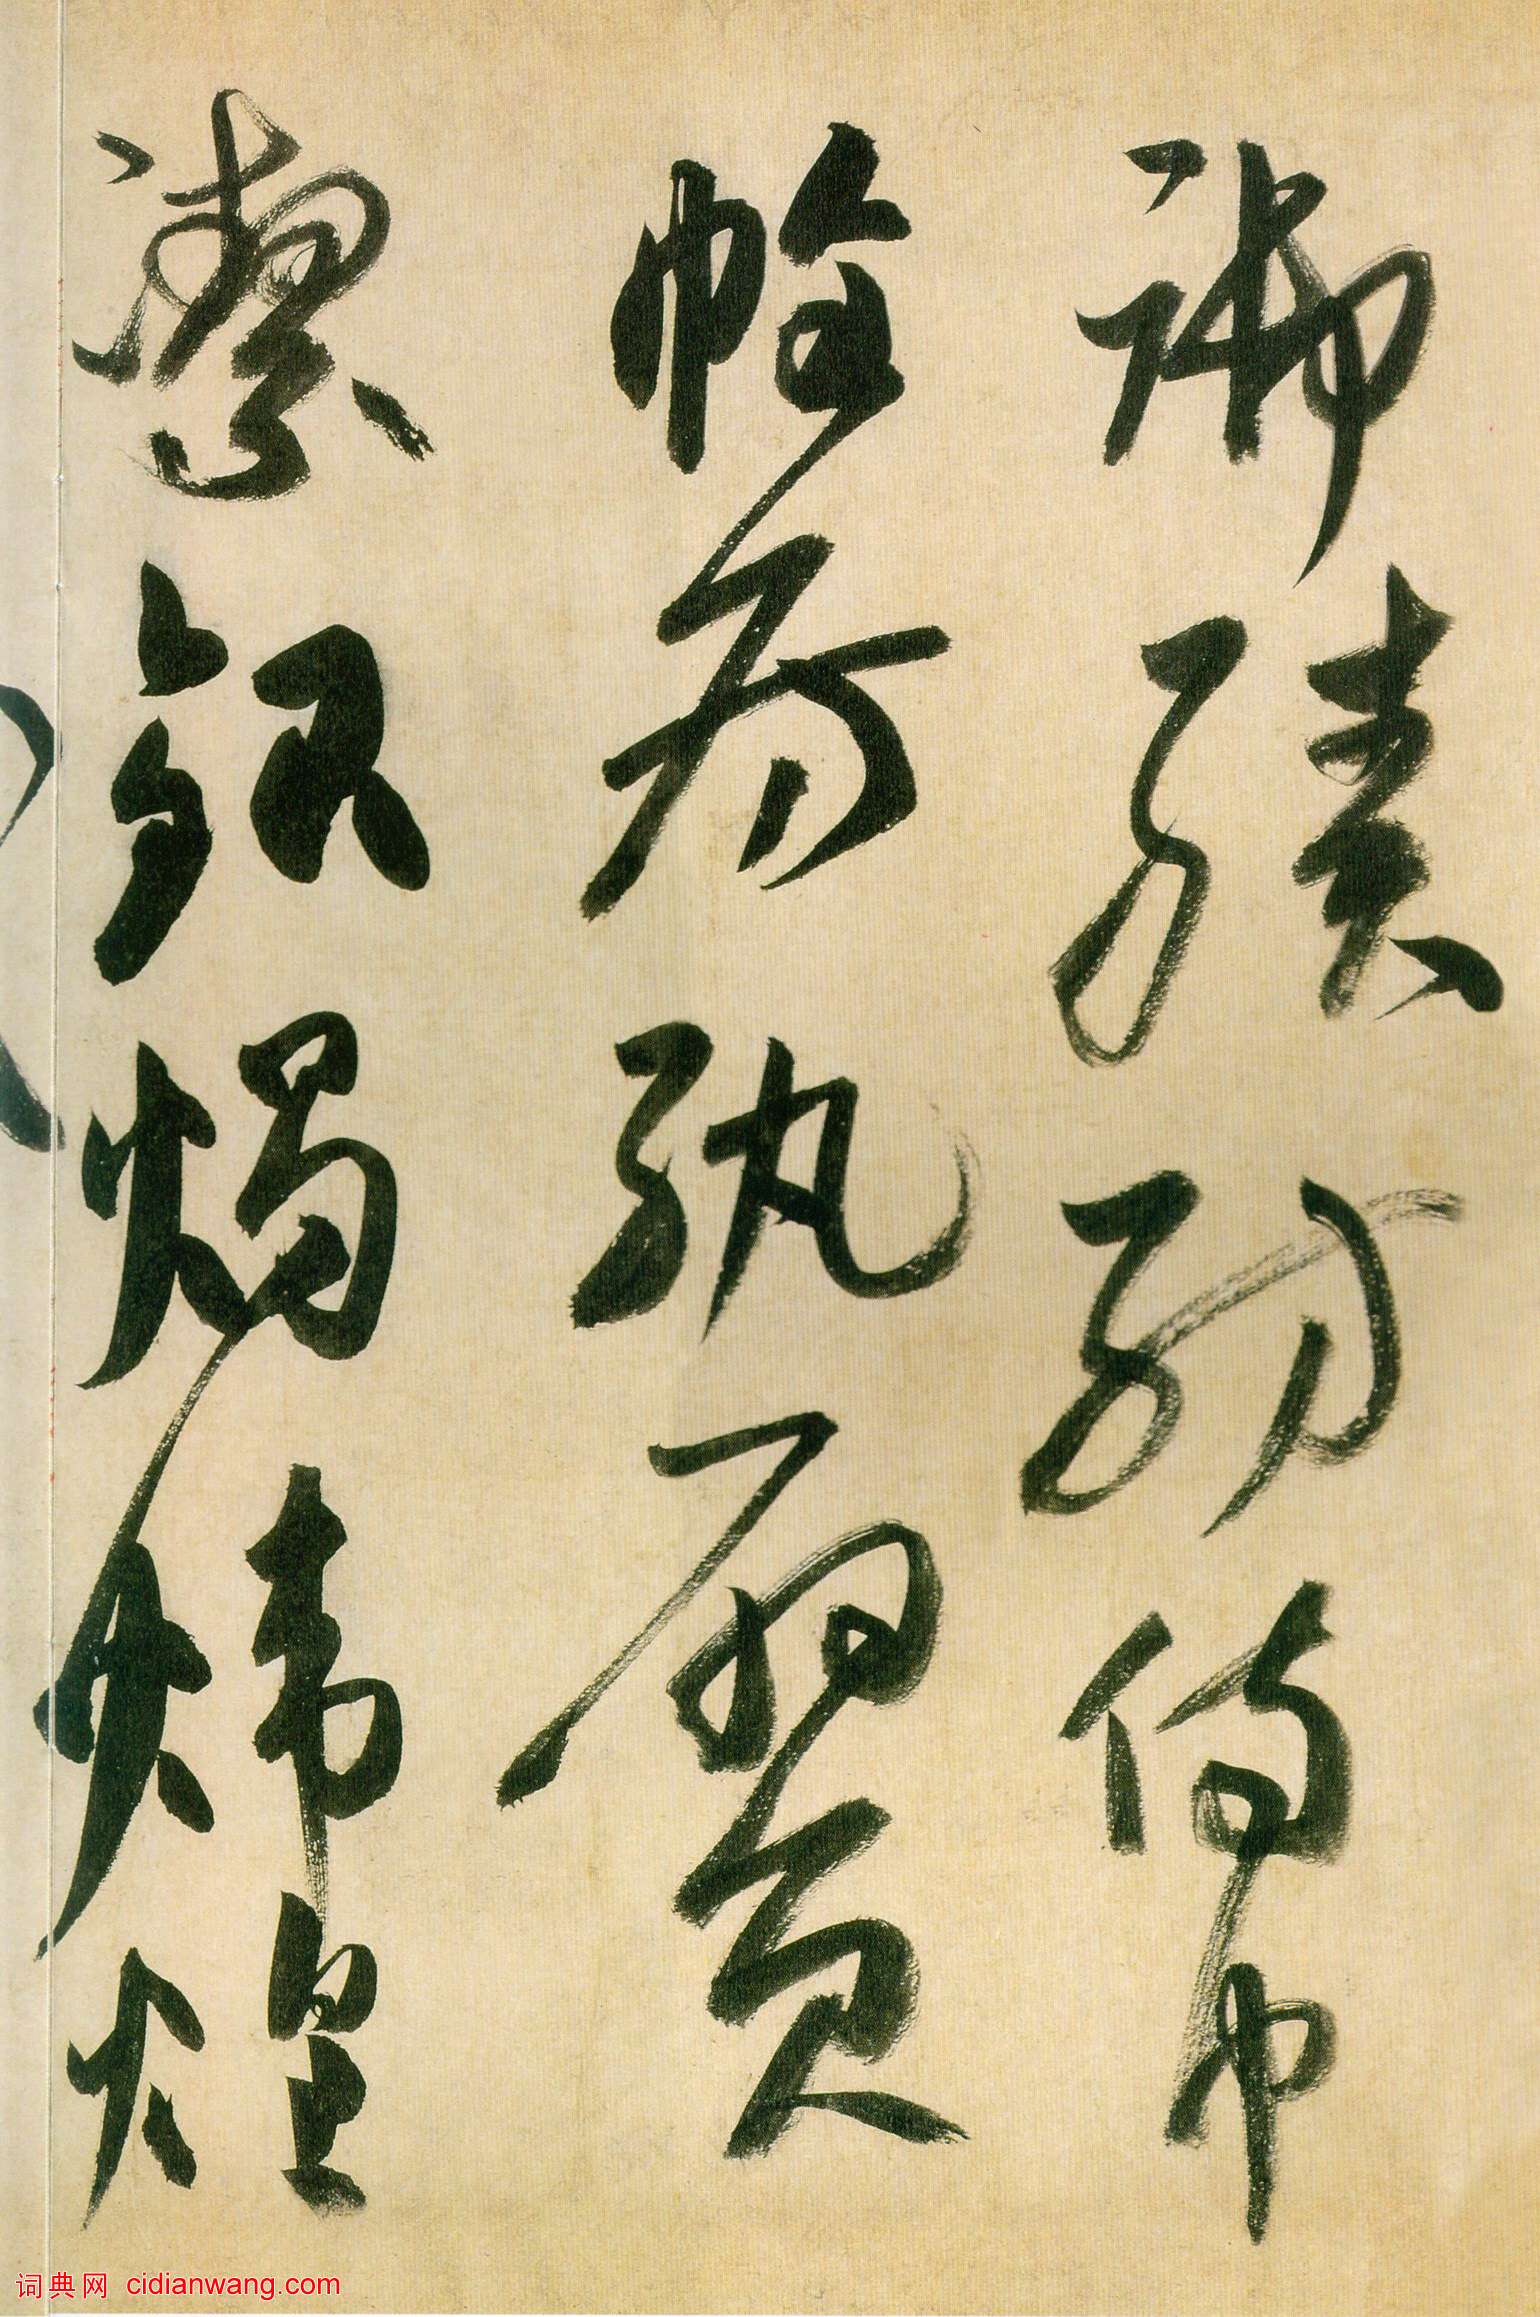 御績紡侍巾
帷房紈扇員
潔銀燭煒煌
词典网 cidianwang.com